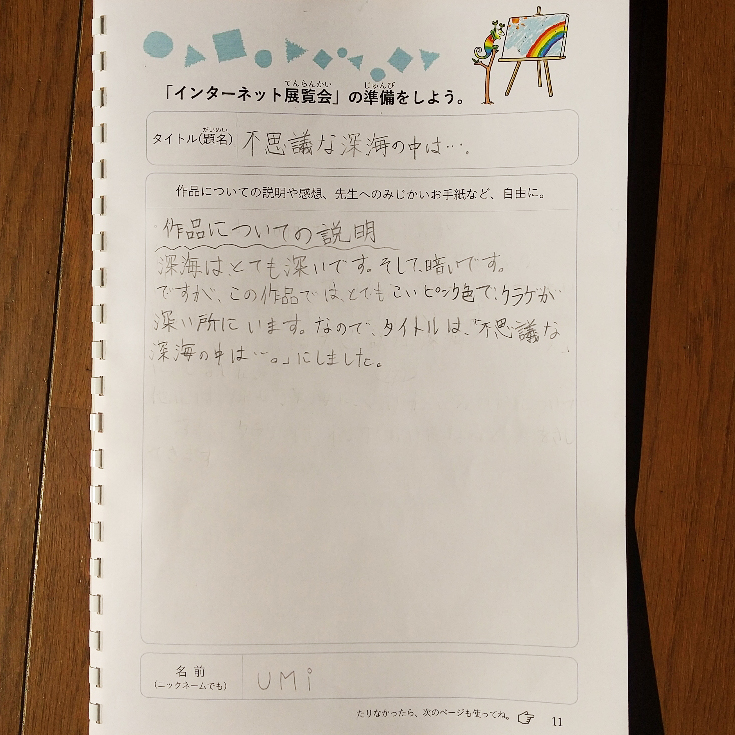 「インターネット展覧会」の準備をしよう。
てんらんかい じゅんび
タイトル(題名) 不思議な深海の中は…。
だいめい
作品についての説明や感想、先生へのみじかいお手紙など、自由に。
作品についての説明
深海はとても深いです。そして、暗いです。
ですが、この作品では、とてもこいピンク色で、クラゲが
深い所にいます。なので、タイトルは、「不思議な
深海の中は…。」にしました。
名前 UMi
(ニックネームでも)
たりなかったら、次のページも使ってね。 11